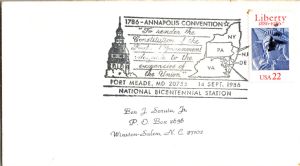 1786 - ANNAPOLIS CONVENTION
"To render the
Constitution of the
Federal Government
adequate to the
exigencies of
the Union"
NY
PA
VA
FORT MEADE, MD 20755
14 SEPT. 1986
NATIONAL BICENTENNIAL STATION
Liberty
USA 22
Ben J.
P. O. Box
Winston-Salem, N. C.